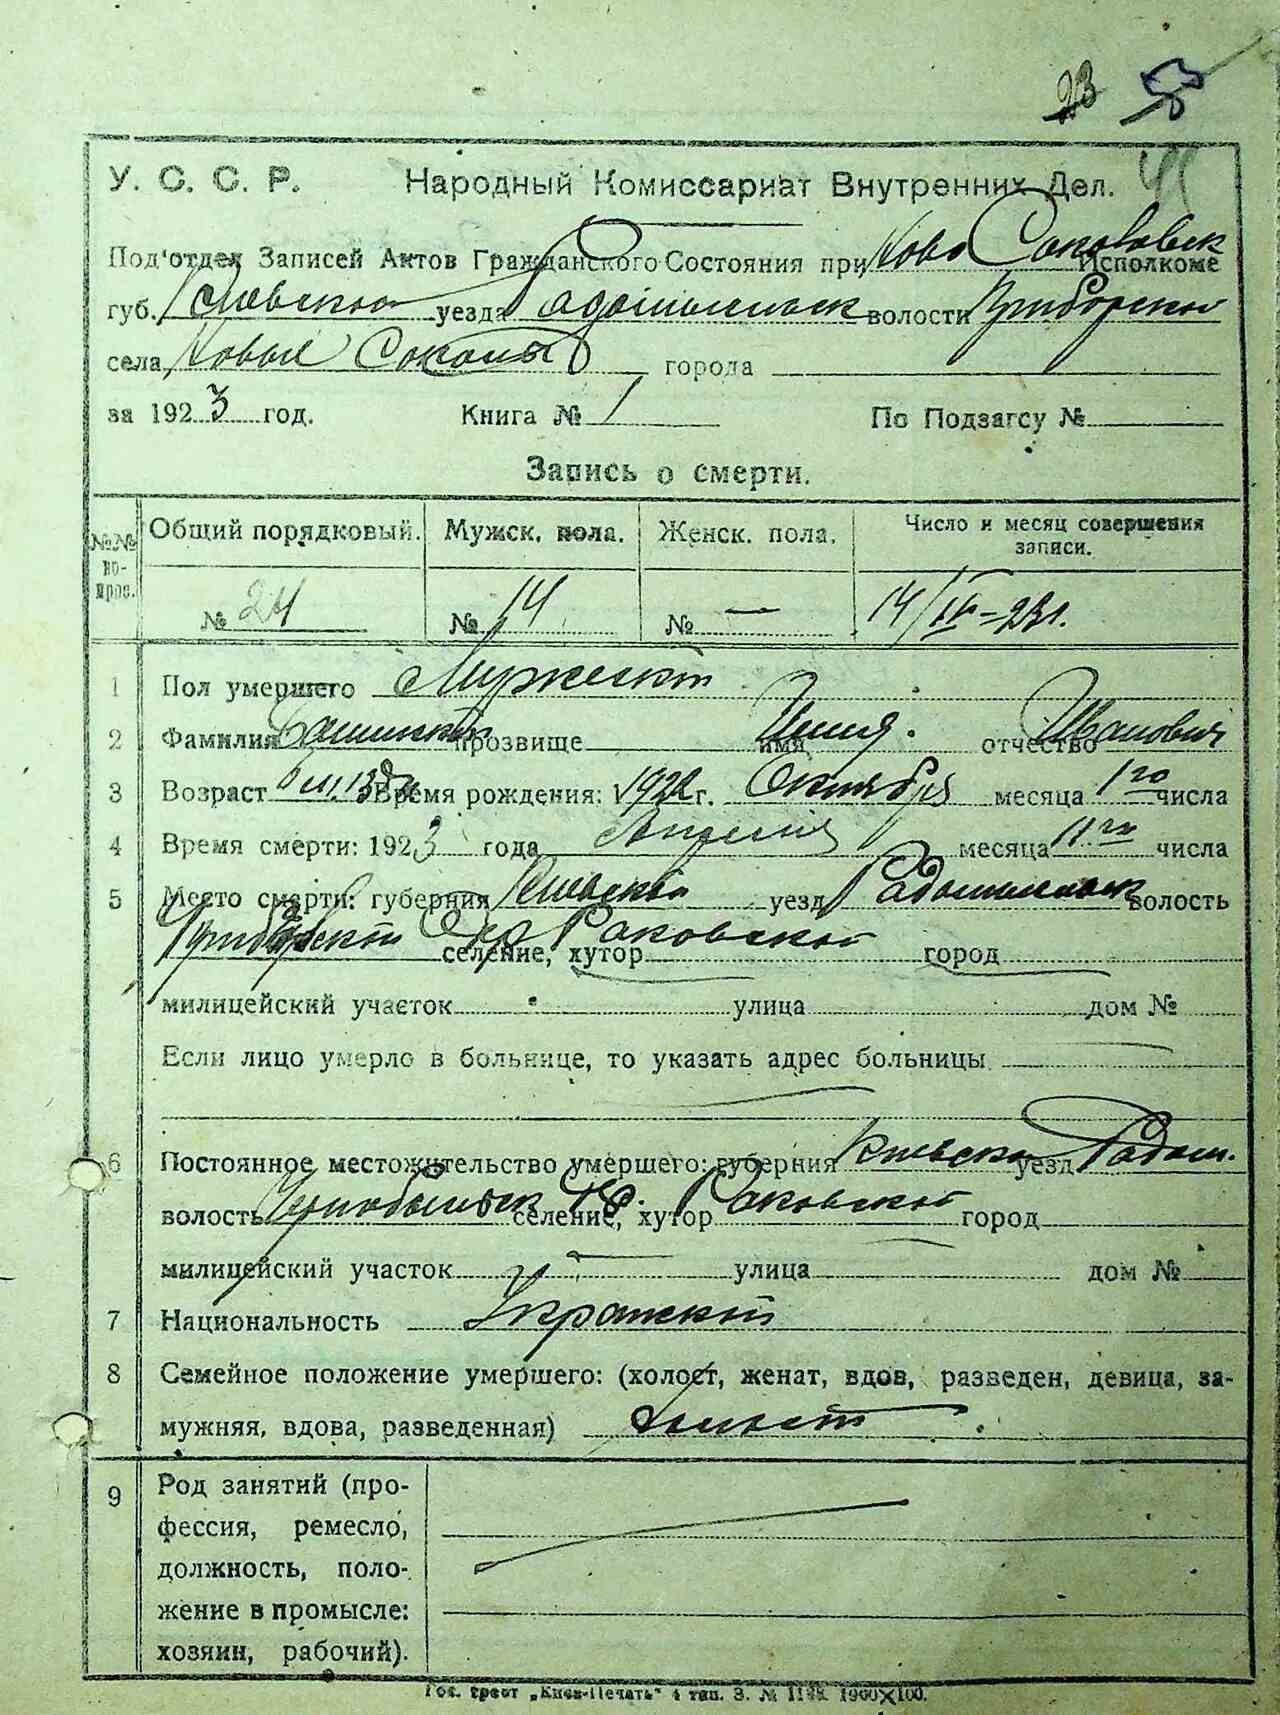 23
У. С. С. Р. Народный Комиссариат Внутренних Дел.
Под'отдел Записей Актов Гражданского Состояния при Ново Соколовск Исполкоме
губ. Киевской уезда Радомысльск волости
села Новые Соколы города
за 1923 год. Книга № 1 По Подзагсу №
Запись о смерти.
№№ во-прос. Общий порядковый. Мужск. пола. Женск. пола. Число и месяц совершения записи.
№ 24 № 14 № — 14/IV-23г.
1 Пол умершего Мужской
2 Фамилия прозвище имя отчество Иванович
3 Возраст 6 м. 13 дн Время рождения: 1922 г. Октября месяца 1го числа
4 Время смерти: 1923 года Апреля месяца числа
5 Место смерти: губерния Киевской уезд Радомысльск волость
Раковской селение, хутор город
милицейский участок улица дом №
Если лицо умерло в больнице, то указать адрес больницы
6 Постоянное местожительство умершего: губерния Киевской уезд Радом.
волость Чернобыльск селение, хутор Раковской город
милицейский участок улица дом №
7 Национальность
8 Семейное положение умершего: (холост, женат, вдов, разведен, девица, за-
мужняя, вдова, разведенная) Холост
9 Род занятий (про-
фессия, ремесло,
должность, поло-
жение в промысле:
хозяин, рабочий).
Гос. трест „Киев-Печать“ 4 тип. З. №